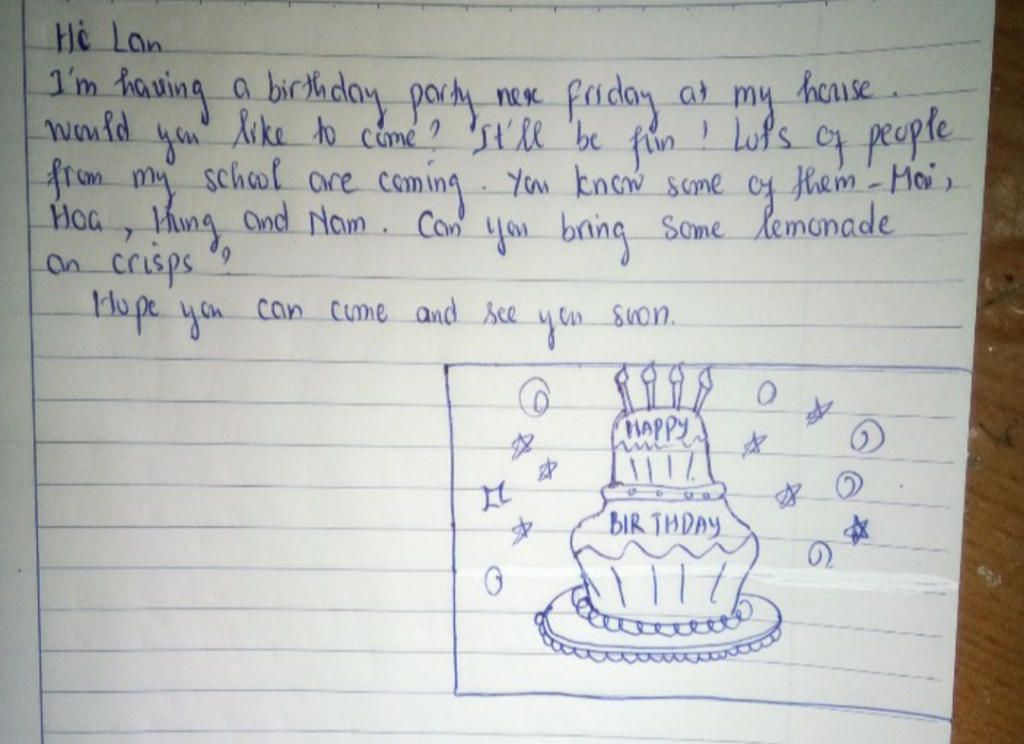 Hi Lan
I'm having a birthday party nex friday at my house.
would you like to come? It'll be fun! Lots of people
from my school are coming. You know some of them - Mai,
Hoa, Hung and Nam. Can you bring some lemonade
on crisps?
Hope you can come and see you soon.
HAPPY
BIRTHDAY